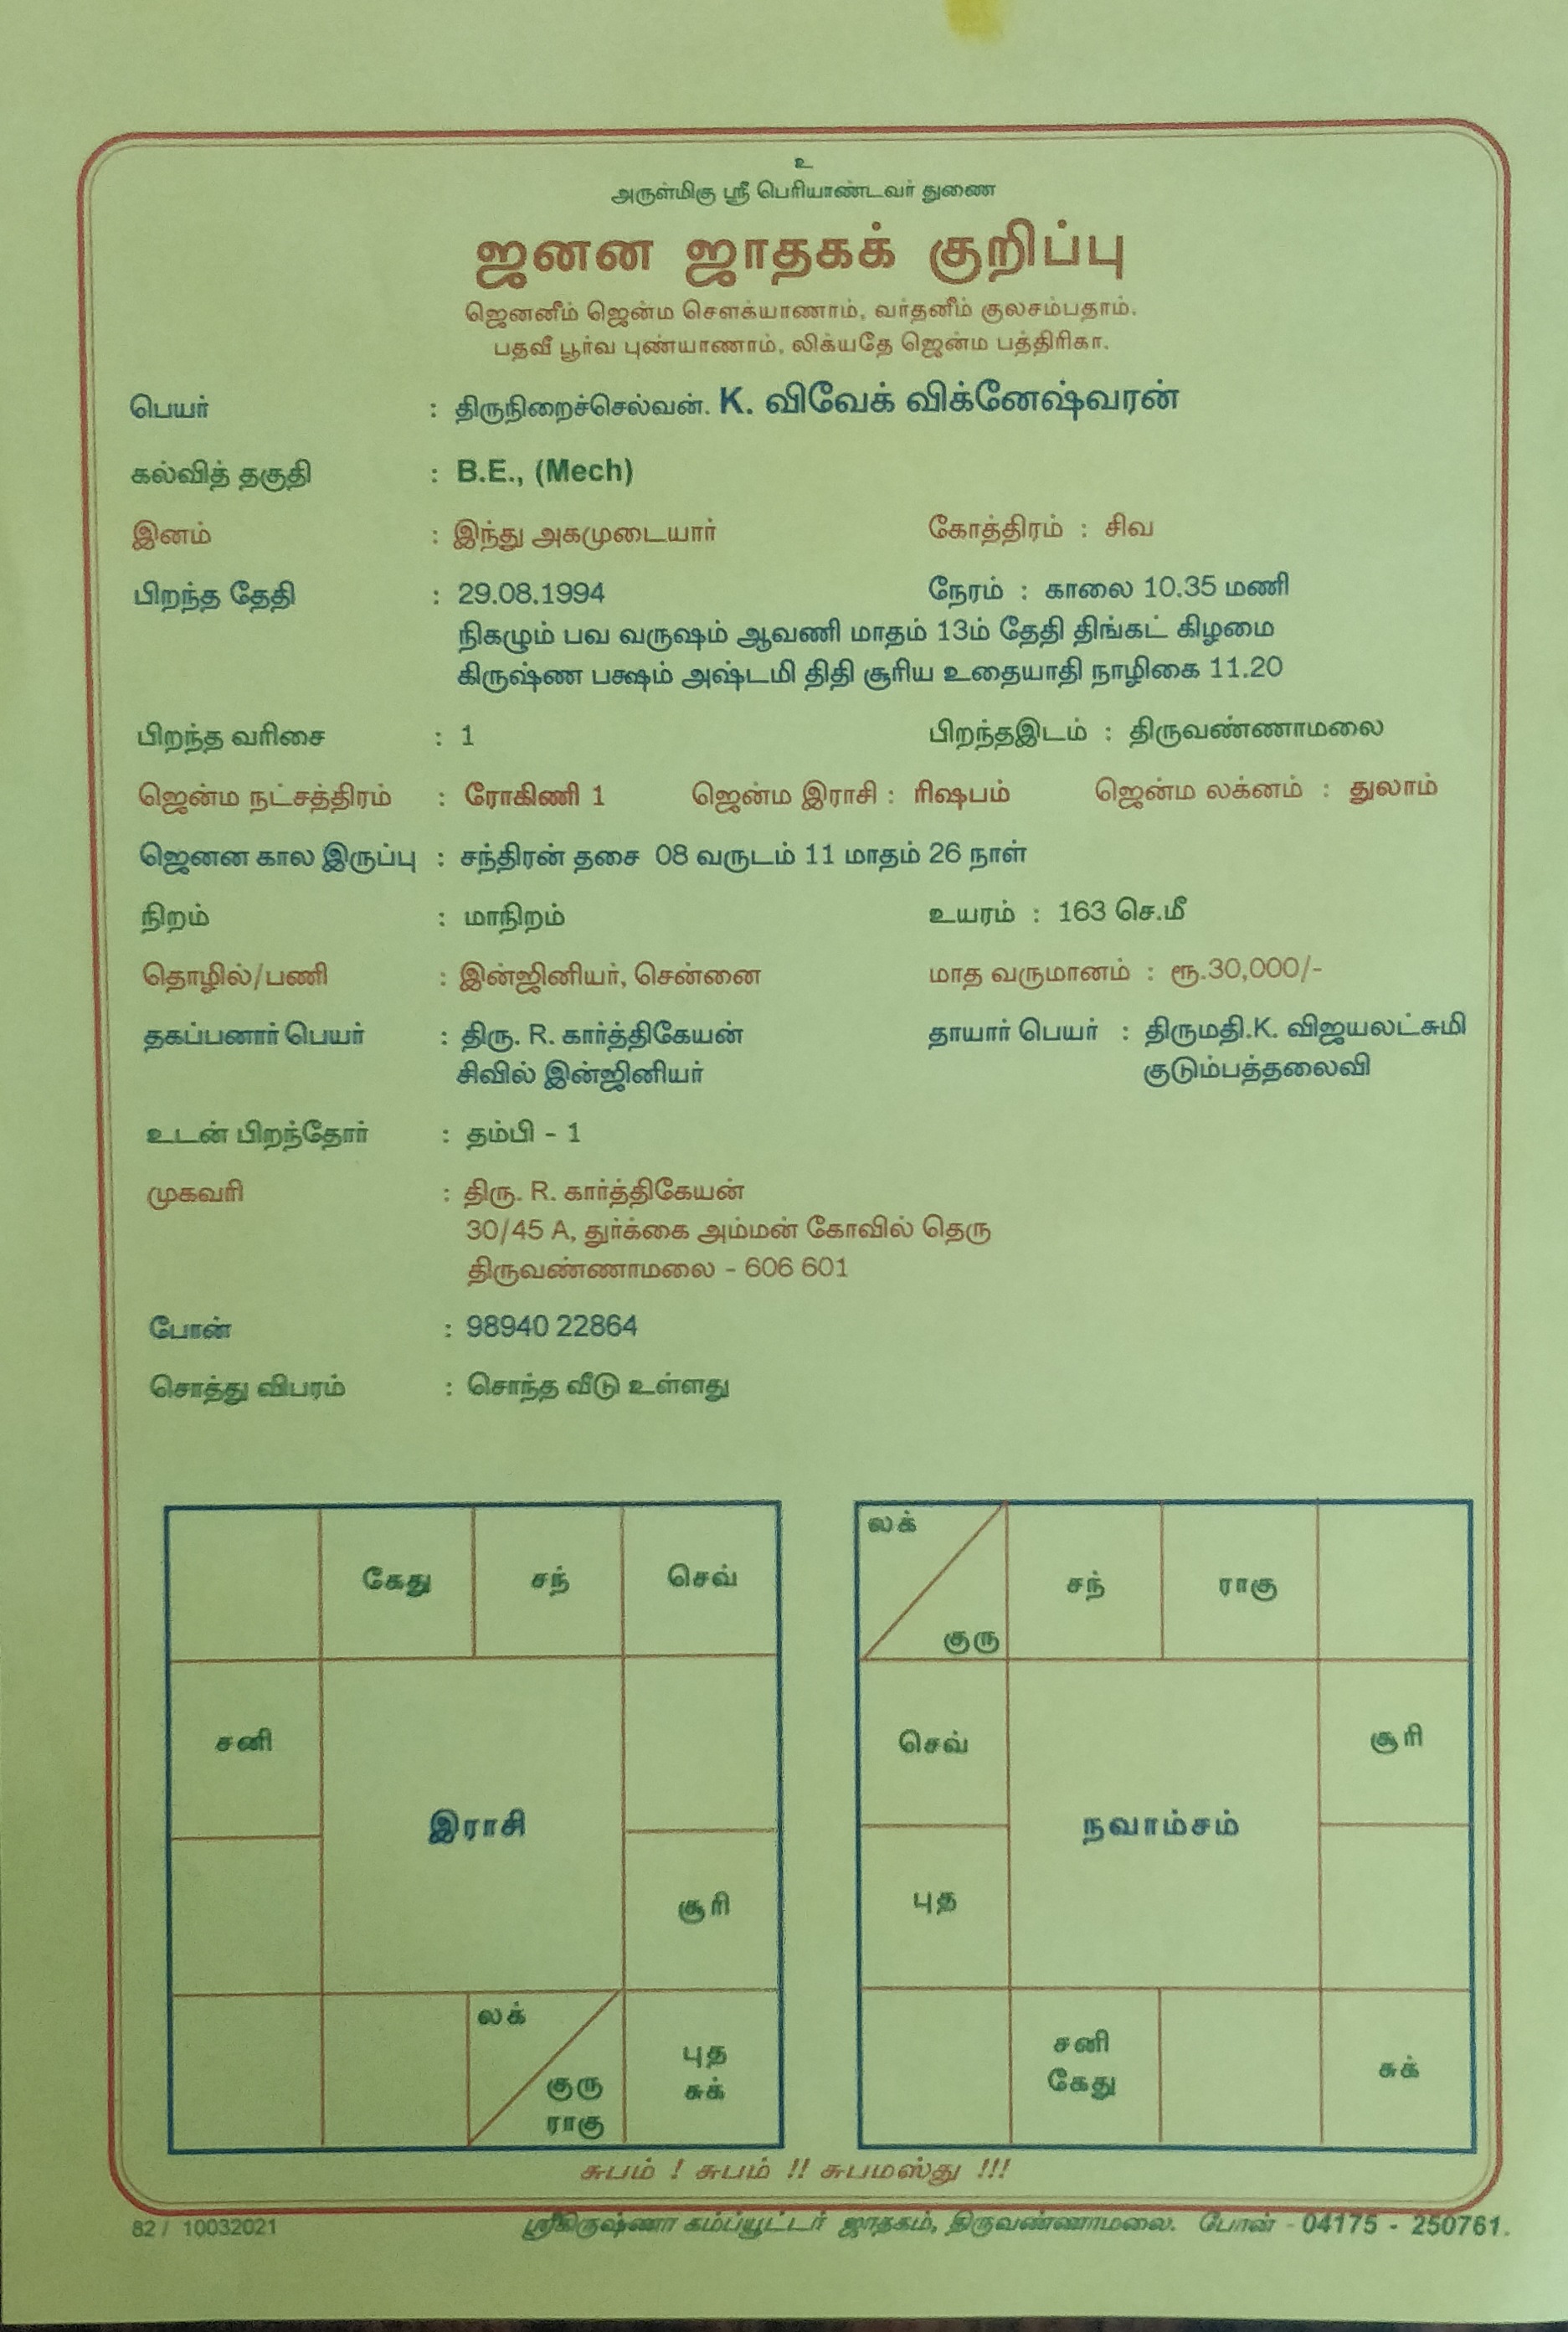 உ
அருள்மிகு ஸ்ரீ பெரியாண்டவர் துணை
ஜனன ஜாதகக் குறிப்பு
ஜெனனீம் ஜென்ம சௌக்யாணாம், வர்தனீம் குலசம்பதாம்.
பதவீ பூர்வ புண்யாணாம், லிக்யதே ஜென்ம பத்திரிகா.
பெயர் : திருநிறைச்செல்வன். K. விவேக் விக்னேஷ்வரன்
கல்வித் தகுதி : B.E., (Mech)
இனம் : இந்து அகமுடையார் கோத்திரம் : சிவ
பிறந்த தேதி : 29.08.1994 நேரம் : காலை 10.35 மணி
நிகழும் பவ வருஷம் ஆவணி மாதம் 13ம் தேதி திங்கட் கிழமை
கிருஷ்ண பக்ஷம் அஷ்டமி திதி சூரிய உதையாதி நாழிகை 11.20
பிறந்த வரிசை : 1 பிறந்தஇடம் : திருவண்ணாமலை
ஜென்ம நட்சத்திரம் : ரோகிணி 1 ஜென்ம இராசி : ரிஷபம் ஜென்ம லக்னம் : துலாம்
ஜெனன கால இருப்பு : சந்திரன் தசை 08 வருடம் 11 மாதம் 26 நாள்
நிறம் : மாநிறம் உயரம் : 163 செ.மீ
தொழில்/பணி : இன்ஜினியர், சென்னை மாத வருமானம் : ரூ.30,000/-
தகப்பனார் பெயர் : திரு. R. கார்த்திகேயன் தாயார் பெயர் : திருமதி.K. விஜயலட்சுமி
சிவில் இன்ஜினியர் குடும்பத்தலைவி
உடன் பிறந்தோர் : தம்பி - 1
முகவரி : திரு. R. கார்த்திகேயன்
30/45 A, துர்க்கை அம்மன் கோவில் தெரு
திருவண்ணாமலை - 606 601
போன் : 98940 22864
சொத்து விபரம் : சொந்த வீடு உள்ளது
கேது சந் செவ்
சனி
இராசி
சூரி
லக்
குரு
ராகு
புத
சுக்
லக்
குரு
சந் ராகு
செவ் சூரி
நவாம்சம்
புத
சனி
கேது
சுக்
சுபம் ! சுபம் !! சுபமஸ்து !!!
82 / 10032021 ஸ்ரீகிருஷ்ணா கம்ப்யூட்டர் ஜாதகம், திருவண்ணாமலை. போன் - 04175 - 250761.